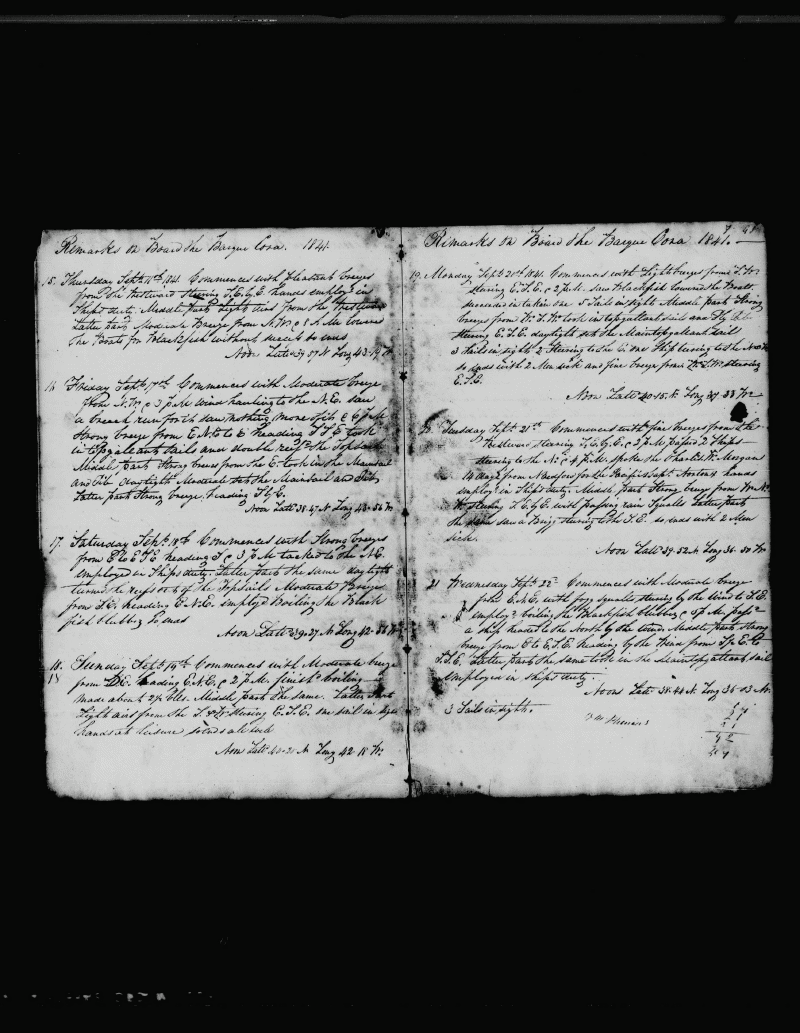 Remarks on Board the Barque Cora. 1841.
15. Thursday Septr 16th 1841. Commences with Pleasant breezes
from the Westward Stering S.E.by E. hands employd in
Ships duty. Middle part Light airs from the Westward
Latter part Moderate Breeze from N.W. @ 8 A.M. lowered
the Boats for Blackfish without success So ends
Noon Latd 39-57 N Long 43-19 W
16 Friday Septr 17th Commences with Moderate breeze
from N.W. @ 3 P.M wind hauling to the N.E. saw
a breach run for it saw nothing more of it @ 6 P.M
Strong breeze from E.N.E heading took
in topgallant sails and double reefd the Topsails
Middle part Strong breeze from the E. took in the Mainsail
and Jib daylight Moderate set the Mainsail and Jib
Latter part Strong breeze, heading S.by E.
Noon Latd 38-47 N Long 43-56 W
17. Saturday Septr 18th Commences with Strong breezes
from heading S @ 3 P.M tacked to the N.E.
employed in Ships duty. Latter part the same daylight
turned the reefs out of the Topsails Moderate breezes
from S.E. heading E.N.E. employd Boiling the Black
fish blubber So ends
Noon Latd 39-27 N Long 42-38 W
18. Sunday Septr 19th Commences with Moderate breeze
18 from S.E. heading E.N.E. @ 2 P.M. finishd boiling
made about 2 1/2 Bbls. Middle part the same. Latter Part
Light airs from the S. & W. Stering E.S.E. one sail in sight
hands at leisure so ends all well
Noon Latd 40-21 N Long 42-18 W.
Remarks on Board the Barque Cora 1841.
19. Monday Septr 20th 1841. Commences with Light breezes from S.W.
Stering E.S.E. @ 2 P.M. saw Blackfish lowered the Boats
succeeded in taken one 5 Sails in sight Middle part Strong
breezes from W.S.W. took in topgallant sails and Fly Jib
Stering E.S.E. daylight set the Maintopgallant Sail
3 Sails in sight 2 Stering to the one Ship Stering to the
so ends with 2 Men sick and fine breeze from W.S.W. stering
E.S.E.
Noon Latd 40-15 N. Long 39-33 W
20 Tuesday Septr 21st Commences with fine breezes from the
Westward, Stering S.E.by E. @ 2 P.M passed 2 Ships
stering to the N. @ 4 P.M. spoke the Charles W. Morgan
14 days from N. Bedford for the Pacific Capt. Norton hands
employ in Ships duty. Middle part Strong breeze from
W. Stering S.E.by E. with passing rain Squalls Latter part
the same saw a Brigg Stering to the S.E. so ends with 2 Men
sick.
Noon Latd 39-52 N Long 36-50 W
21 Wednesday Septr 22d Commences with Moderate breeze
from E.N.E. with foggy Squalls stering by the wind to S.E.
employd boiling the Blackfish blubber, @ 5 P.M. passd
a ship headed to the North by the wind Middle part Strong
breeze from E to E.S.E. heading by the Wind from
S.S.E. Latter part the same took in the Maintopgallant sail
employed in ships duty.
Noon Latd 38-44 N. Long 36-03 W.
3 Sails in sight.